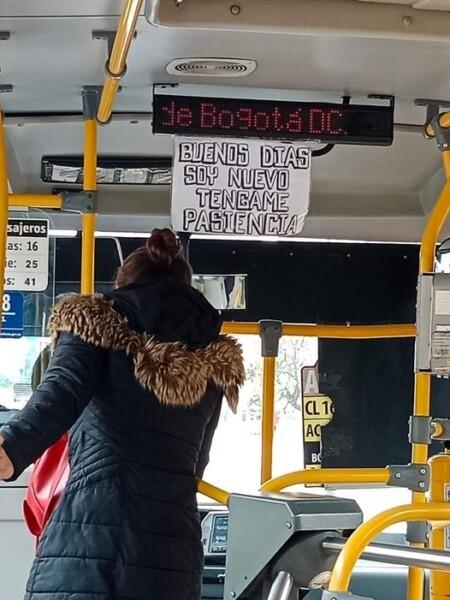 de Bogotá DC.
BUENOS DIAS
SOY NUEVO
TENGAME
PASIENCIA
sajeros
tas: 16
ie: 25
os: 41
8
A
CL 16
AC
BO